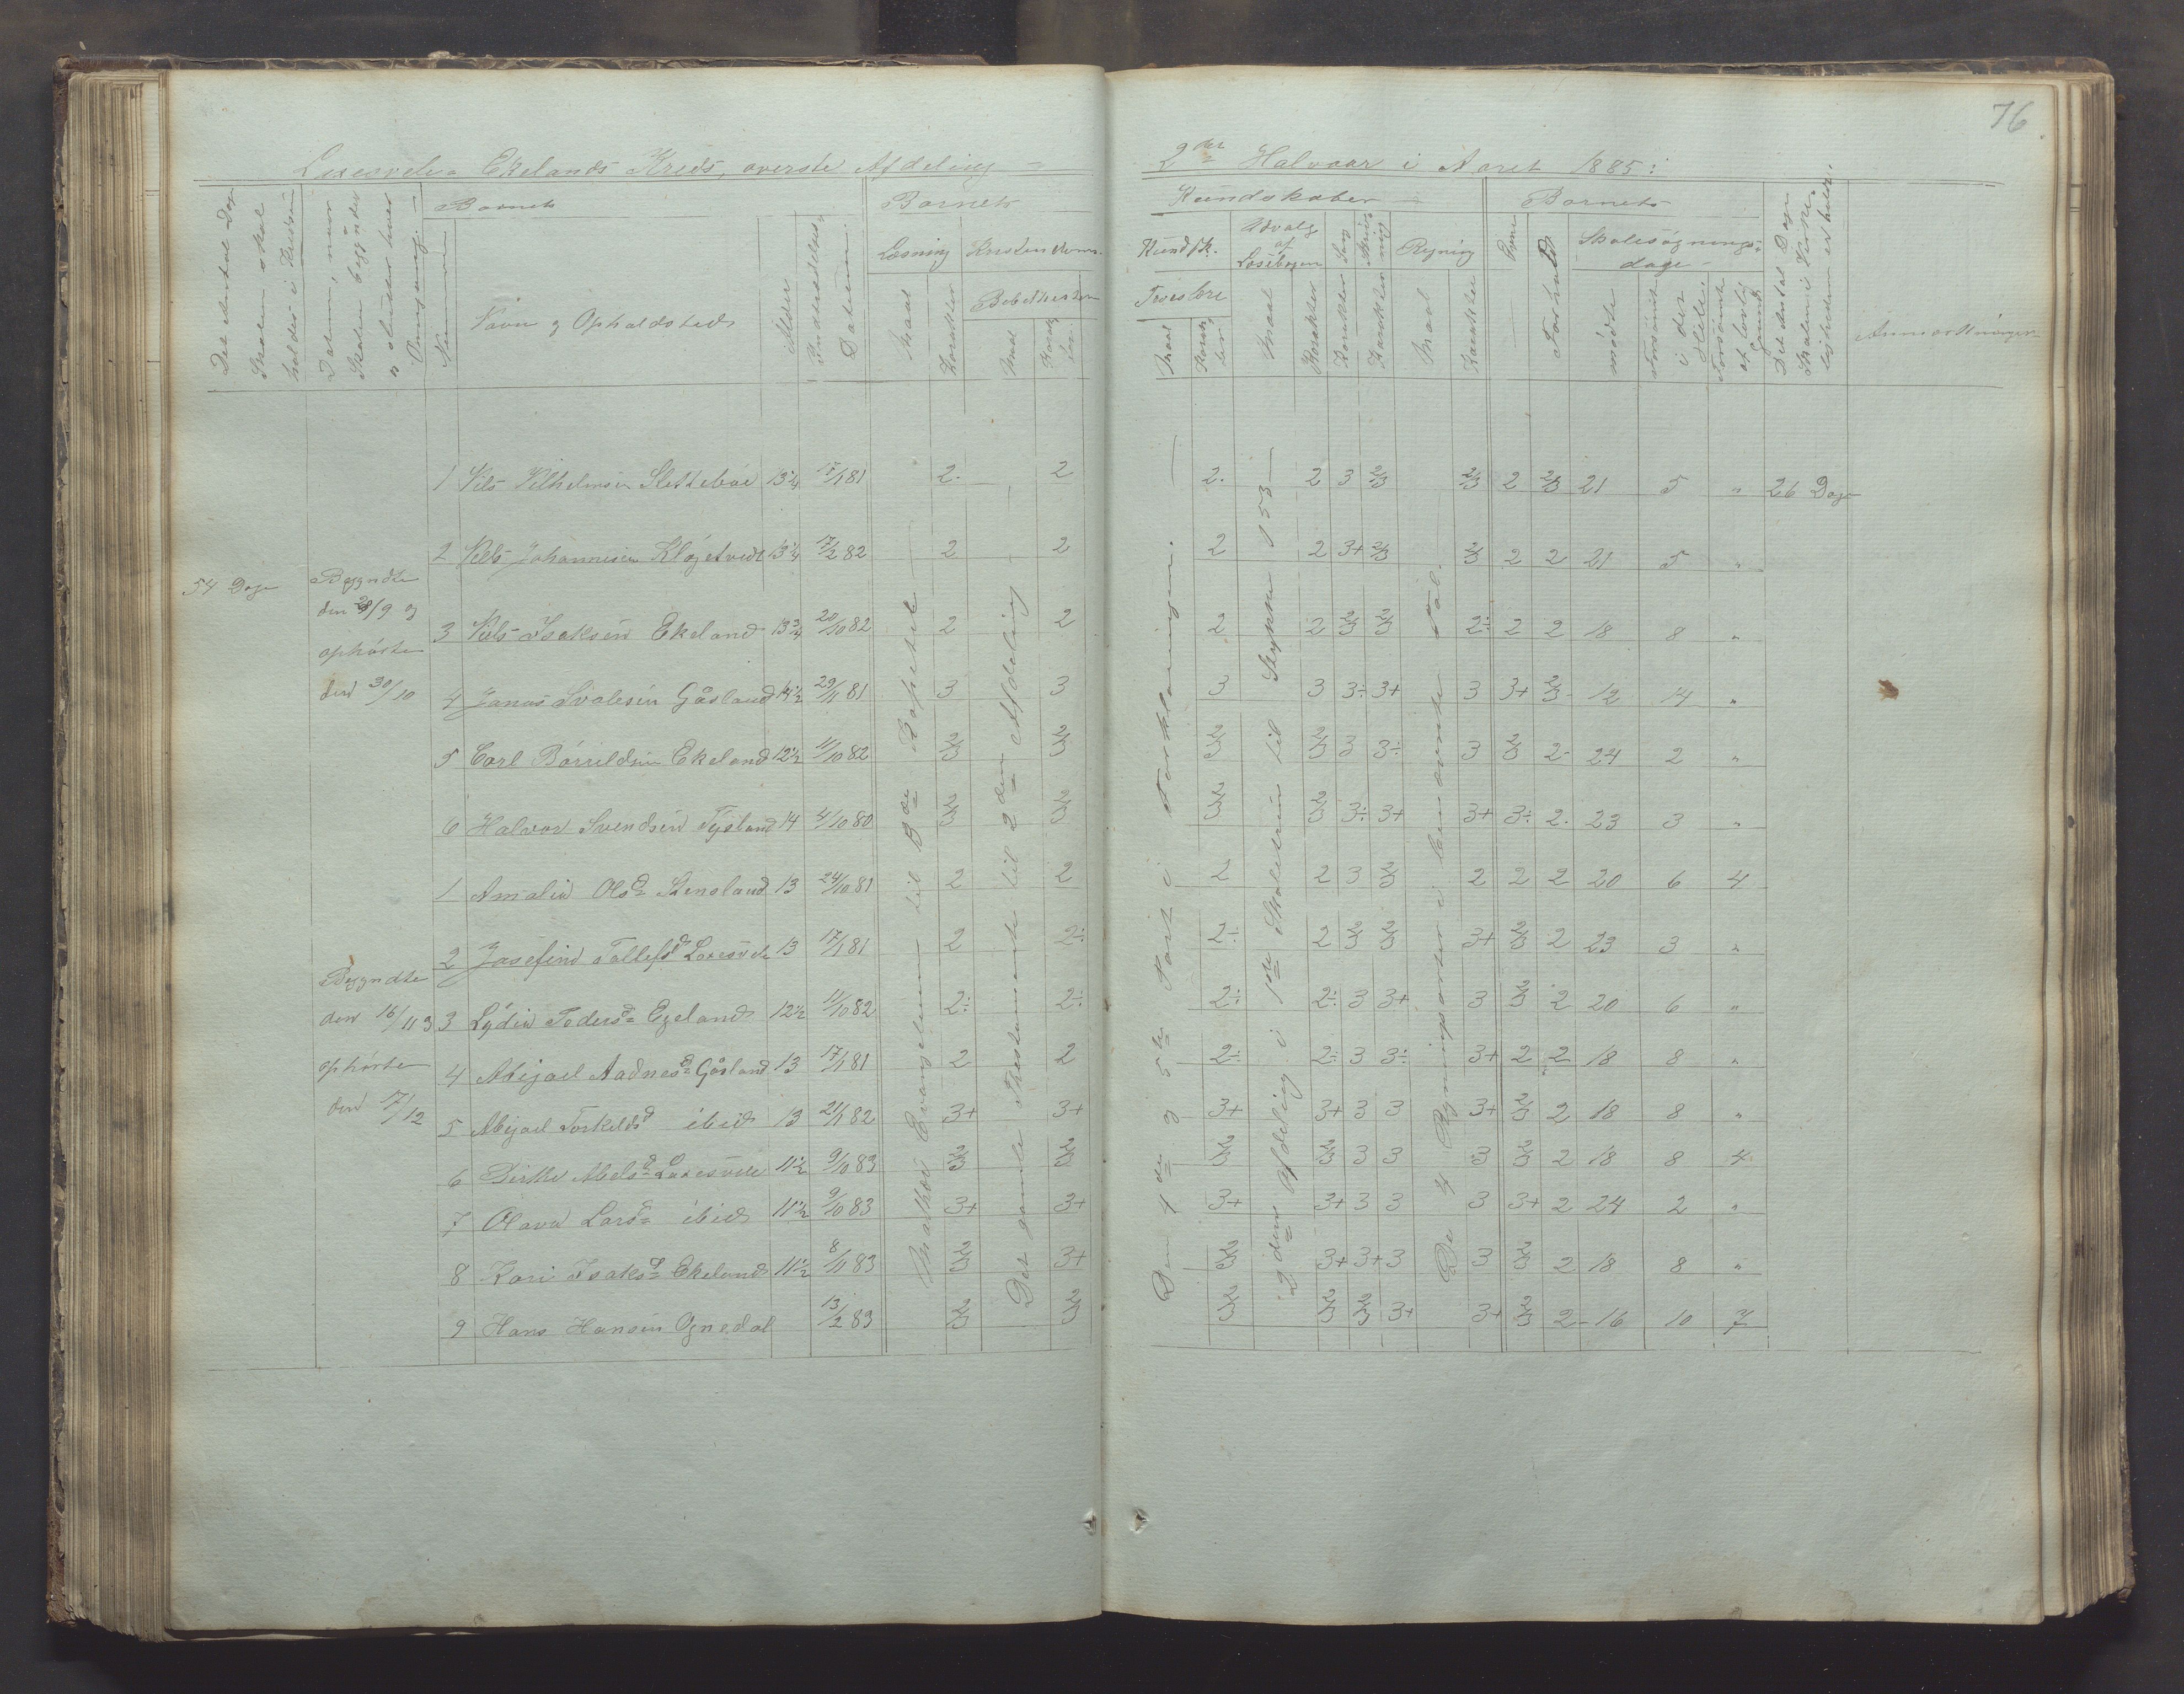 76
Ekelands Kreds, øverste Afdeling
2det Halvaar i Aaret 1885:
Det Antal Dage Skolen skal holdes i Kredsen
Datum, naar Skolen begynder og slutter hver Omgang.
Barnets
Nummer
Navn og Opholdssted
Alder
Indtrædelses Datum
Barnets
Læsning
Maal
Karakter
Kristendoms
Maal
Karakter
Kundskaber
Kundsk.
Troeslære
Maal
Karakter
Udvalg af Læsebogen
Maal
Karakter
Sang
Karakter
Skrivning
Karakter
Regning
Maal
Karakter
Barnets
Evne
Forhold
Skolesøgningsdage
mødte
forsømte i det Hele
forsømte af lovlig Grund
Det Antal Dage Skolen i Virkeligheden er holdt.
Anmærkninger
54 Dage
Begyndte den 28/9 og ophørte den 30/10
Begyndte den 16/11 og ophørte den 17/12
Mathæi Evangelium til 13de Kapitel
Det gamle Testamente til 2den Afdeling
Den 1de og 5te Part i Forklaringen.
2den Afdeling i 1ste Skoletrin til Stykke 153
De 4 Regningsarter i ubenævnte Tal.
1 Nils Vilhelmsen Slettebøe 13 1/4 17/1 81 2. 2 2. 2 3 2/3 2/3 2 2/3 21 5 " 26 Dage
2 Nels Johannesen Kløgetvedt 13 1/4 17/2 82 2 2 2 2 3+ 2/3 2/3 2 2 21 5 "
3 Nils Isaksen Ekeland 13 3/4 20/10 82 2 2 2 2 2/3 2/3 2÷ 2 2 18 8 "
4 Janus Svalesen Gåsland 14 1/2 29/11 81 3 3 3 3 3÷ 3+ 3 3+ 2/3 12 14 "
5 Carl Børrildsen Ekeland 12 1/2 11/10 82 2/3 2/3 2/3 2/3 3 3÷ 3 2/3 2 24 2 "
6 Halvor Svendsen Tysland 14 4/10 80 2/3 2/3 2/3 2/3 3÷ 3+ 3+ 3÷ 2. 23 3 "
1 Amalia Olsd Stensland 13 24/10 81 2 2 2 2 3 2/3 2 2 2 20 6 4
2 Josefine Tollefsd Laxesvele 13 17/1 81 2 2÷ 2÷ 2 2/3 2/3 3+ 2/3 2 23 3 "
3 Lydia Pedersd Egeland 12 1/2 11/10 82 2÷ 2÷ 2÷ 2÷ 3 3+ 3 2/3 2 20 6 "
4 Abigael Aadnesd Gåsland 13 17/1 81 2 2 2÷ 2÷ 3 3÷ 3+ 2 2 18 8 "
5 Abigael Torkeldsd ibid 13 21/1 82 3+ 3+ 3+ 3+ 3 3 3+ 2/3 2 18 8 "
6 Birthe Abelsd Laxesvele 11 1/2 9/10 83 2/3 2/3 2/3 2/3 3 3 3 2/3 2 18 8 4
7 Olava Larsd ibid 11 1/2 9/10 83 3+ 3+ 3+ 3+ 3 3 3 3+ 2 24 2 "
8 Kari Isaksd Ekeland 11 1/2 8/11 83 2/3 3+ 2/3 3+ 3+ 3 3 2/3 2 18 8 "
9 Hans Hansen Ognedal 13/2 83 2/3 2/3 2/3 2/3 2/3 3+ 3+ 2/3 2 16 10 7